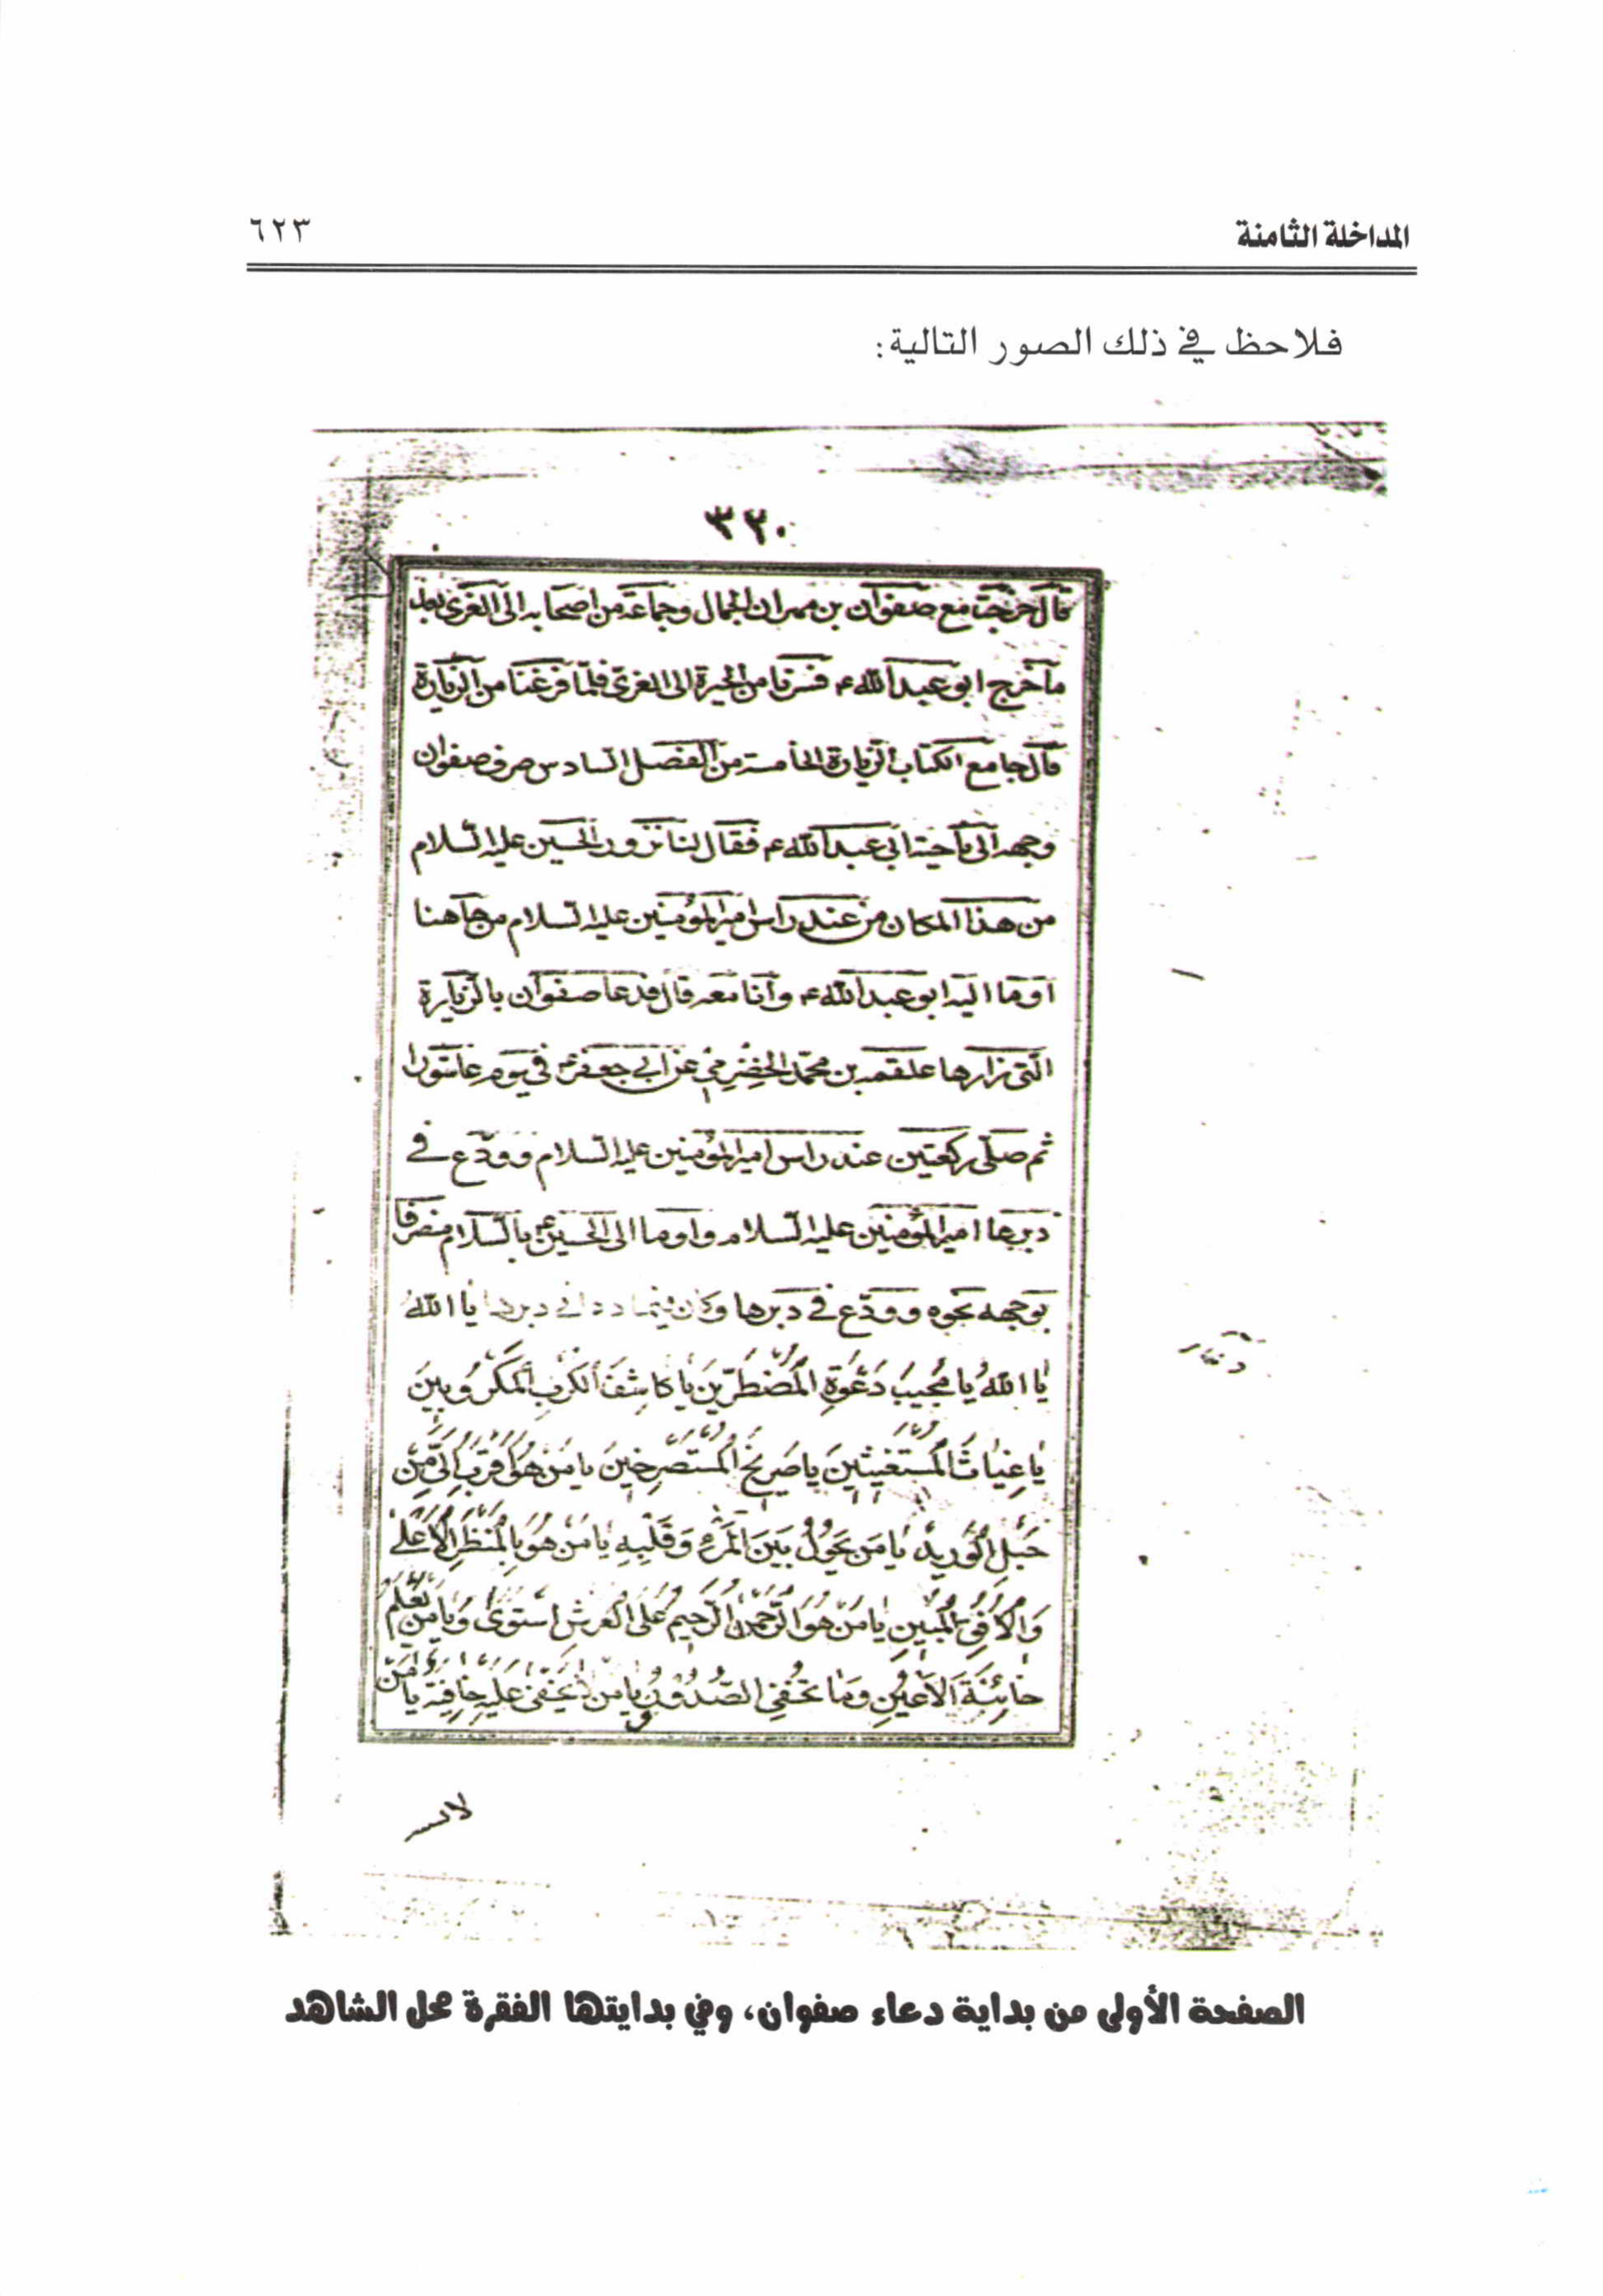 المداخلة الثامنة
٦٢٣
فلاحظ في ذلك الصور التالية:
٣٢٠
قال خرجت مع صفوان بن مهران الجمال وجماعة من اصحابه الى الغرى بعد
ما خرج ابو عبد الله ع فسرنا من الحيرة الى الغرى فلما فرغنا من الزيارة
قال جامع الكتاب الزيارة الخامسة من الفصل السادس صرف صفوان
وجهه الى ناحية ابي عبد الله ع فقال لنا تزورون الحسين عليه السلام
من هذا المكان من عند راس امير المؤمنين عليه السلام من هاهنا
اوما اليه ابو عبد الله ع وانا معه قال فدعا صفوان بالزيارة
التي زارها علقمه بن محمد الحضرمي عن ابي جعفر ع في يوم عاشورا
ثم صلى ركعتين عند راس امير المؤمنين عليه السلام وودع في
دبرها امير المؤمنين عليه السلام واوما الى الحسين ع بالسلام منصرفا
بوجهه نحوه وودع في دبرها وكان فيما دعا في دبرها يا الله
يا اللهُ يا مُجيبَ دَعْوَةِ المُضْطَرّينَ يا كاشِفَ الكَرْبِ المَكْرُوبينَ
يا غِياثَ المُسْتَغيثينَ يا صَريخَ المُسْتَصْرِخينَ يا مَنْ هُوَ اَقْرَبُ اِلَيَّ مِنْ
حَبْلِ الْوَريدِ يا مَنْ يَحُولُ بَيْنَ المَرْءِ وَقَلْبِهِ يا مَنْ هُوَ بِالْمَنْظَرِ الْاَعْلى
وَالْاُفُقِ المُبينِ يا مَنْ هُوَ الرَّحْمنُ الرَّحيمُ عَلَى الْعَرْشِ اسْتَوى وَيا مَنْ يَعْلَمُ
خائِنَةَ الاَعْيُنِ وَما تُخْفِي الصُّدُورُ وَيا مَنْ لا يَخْفى عَلَيْهِ خافِيَةٌ يا مَنْ
الصفحة الأولى من بداية دعاء صفوان، وفي بدايتها الفقرة محل الشاهد